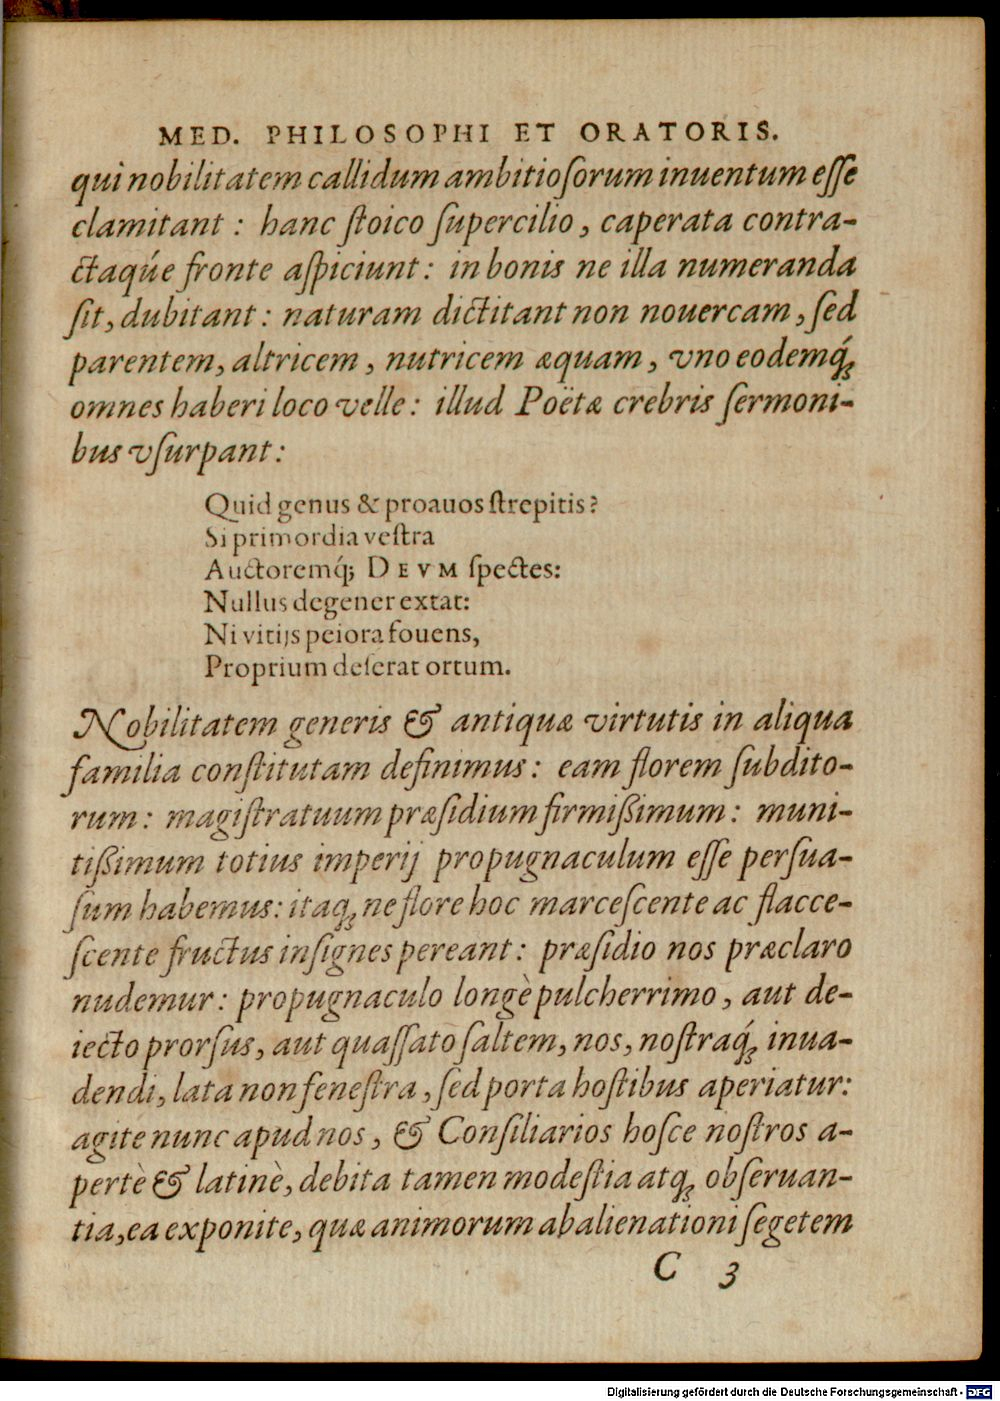 MED. PHILOSOPHI ET ORATORIS.
qui nobilitatem callidum ambitioſorum inuentum eſſe
clamitant : hanc ſtoico ſupercilio, caperata contra-
ctaqúe fronte aſpiciunt : in bonis ne illa numeranda
ſit, dubitant : naturam dictitant non nouercam, ſed
parentem, altricem, nutricem æquam, vno eodemq́ꝫ
omnes haberi loco velle : illud Poëtæ crebris ſermoni-
bus vſurpant :
Quid genus & proauos ſtrepitis?
Si primordia veſtra
Auctoremq́ꝫ DEVM ſpectes:
Nullus degener extat:
Ni vitijs peiora fouens,
Proprium deſerat ortum.
Nobilitatem generis & antiquæ virtutis in aliqua
familia conſtitutam definimus : eam florem ſubdito-
rum : magiſtratuum præſidium firmißimum : muni-
tißimum totius imperij propugnaculum eſſe perſua-
ſum habemus : itaqꝫ ne flore hoc marceſcente ac flacce-
ſcente fructus inſignes pereant : præſidio nos præclaro
nudemur : propugnaculo longè pulcherrimo, aut de-
iecto prorſus, aut quaſſato ſaltem, nos, noſtraq́ꝫ inua-
dendi, lata non feneſtra, ſed porta hoſtibus aperiatur:
agite nunc apud nos, & Conſiliarios hoſce noſtros a-
pertè & latinè, debita tamen modeſtia atqꝫ obſeruan-
tia, ea exponite, quæ animorum abalienationi ſegetem
C 3
Digitalisierung gefördert durch die Deutsche Forschungsgemeinschaft - DFG